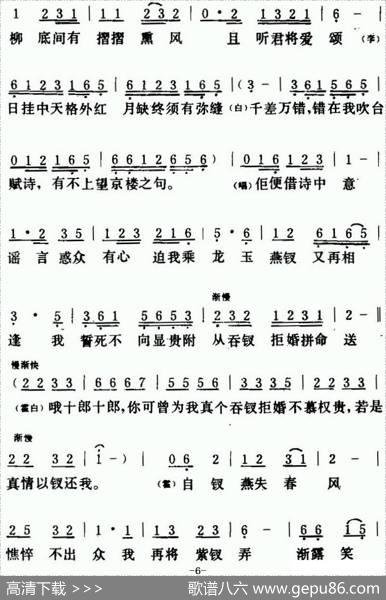 1 231 | 11 232 | 0·2 1321 | 6 - |
柳 底间有 摺摺 熏风 且 听君将爱 颂(李)
6123 2165 | 6123 2165 | (3 - | 3561 5165
日挂中天格外红 月缺终须有弥缝(白)千差万错,错在我吹台
0121 65 | 661265 6) | 0616 123 | 1 - |
赋诗,有不上望京楼之句。 (唱)佢便借诗中 意
1·235 | 2321 61 | 5·6 | 12 6165 |
谣言惑众 有心 迫我乘 龙玉 燕钗 又再相
渐慢
3·5 | 361 5653 | 0535 6165 | 2 - ‖
逢 我 誓死不 向显贵附 从吞钗 拒婚拼命 送
慢渐快
(2233 | 6667 | 5535 | 1212 | 2233
(霍白)哦十郎十郎,你可曾为我真个吞钗拒婚不慕权贵,若是
渐慢
22 32 | 1 -) | 06 2 | 12 31 | 2 - |
真情以钗还我。 (霍) 自 钗 燕失 春 风
35 32 | 1·1 | 13 2327 | 6 - | 66 615 |
憔悴 不出 众我 再将 紫钗 弄 渐露 笑
-6-
高清下载 >>> 歌谱八六 www.gepu86.com